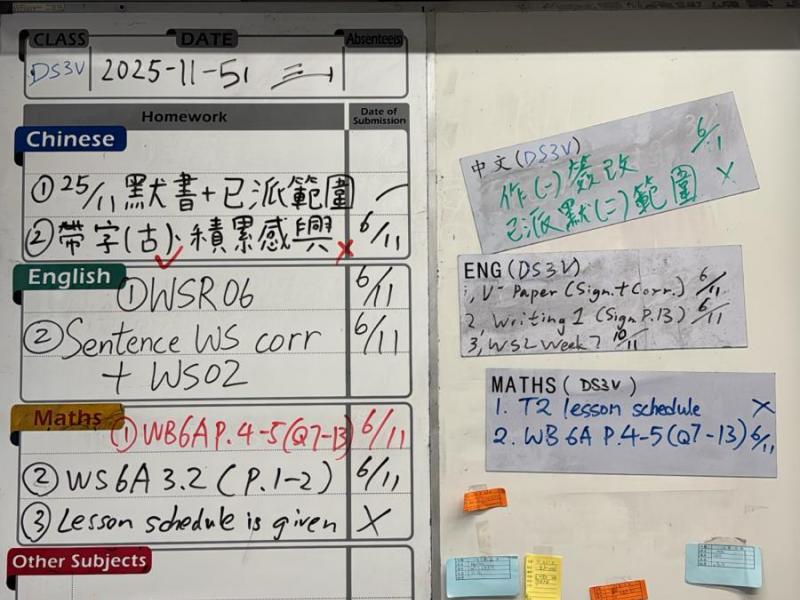 CLASS DATE Absentee(s)
DS3V 2025-11-5
Homework Date of Submission
Chinese
① 25/11 默書+已派範圍
② 帶字(古)、積累感興 6/11
English
① WSR06 6/11
② Sentence WS corr 6/11
+ WS02
Maths
① WB6A P.4-5(Q7-13) 6/11
② WS6A 3.2 (P.1-2) 6/11
③ Lesson schedule is given X
Other Subjects
中文(DS3V)
作(二)簽改 6/11
已派默(二)範圍 X
ENG (DS3V)
1, V- Paper (Sign.+Corr.) 6/11
2, Writing 1 (Sign P.13) 6/11
3, WS2 Week 7 10/11
MATHS (DS3V)
1. T2 lesson schedule X
2. WB 6A P.4-5(Q7-13) 6/11